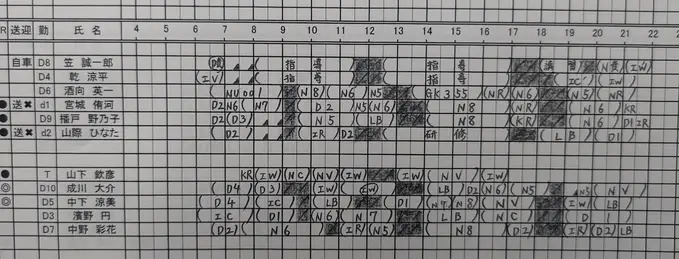 R 送迎 勤 氏 名 4 5 6 7 8 9 10 11 12 13 14 15 16 17 18 19 20 21 22
自車 D8 笠 誠一郎 指 導 指 導 (IW)
D4 乾 涼平 (IV) 指 導 指 導 (IC) (Iw)
D6 酒向 英一 (NU001) (N8) (N6) N5 (GK355) (NR) (N6) (N5) (NR)
● 送✖ d1 宮城 侑河 D2 N6 (N7) (D2) (N5)(N6) (N8) (NR) (N6) KR
● D9 播戸 野乃子 D2(D3) (N5) (LB) (N8) (KR) (N6) D1 IR
● 送✖ d2 山際 ひなた (D2) (IR) D2 研 修 (LB) (D1)
● T 山下 欽彦 KR(IW)(NC)(NV)(IW) (IW)(NV)(IW)
◎ D10 成川 大介 (D4)(D3) (IW) (LB) D2(N6) (N5) (NV)
◎ D5 中下 涼美 (D4) (IC) (LB) (D1) (N7)(N8) (NV) (IW) (LB)
D3 濱野 円 (IC) (D1) (N6) (N7) (LB) (NC) (D1)
D7 中野 彩花 (D2) (N6) (IR)(N5) (N8) (D2) (IR)(D2) LB